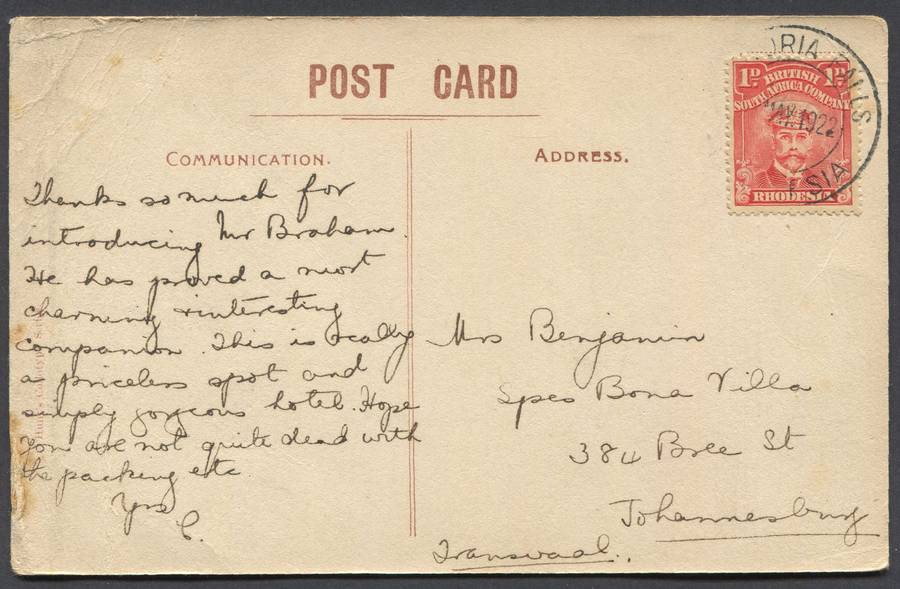 POST CARD
COMMUNICATION.
ADDRESS.
Thanks so much for
introducing Mr Braham.
He has proved a most
charming & interesting
companion. This is really
a priceless spot and
simply gorgeous hotel. Hope
you are not quite dead with
the packing etc
Yrs
C.
Mrs Benjamin
Spes Bona Villa
384 Bree St
Johannesburg
Transvaal.
1D 1D
BRITISH
SOUTH AFRICA COMPANY
RHODESIA
ORIA FALLS
MAY 1922
ESIA